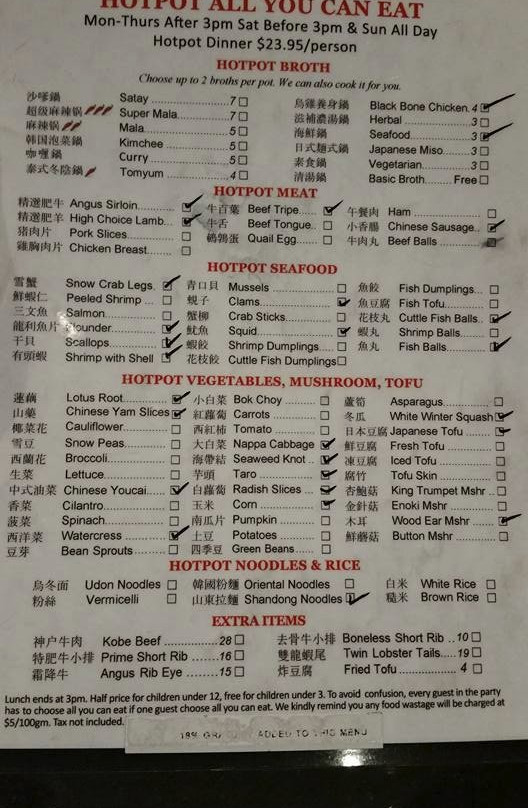 HOTPOT ALL YOU CAN EAT
Mon-Thurs After 3pm Sat Before 3pm & Sun All Day
Hotpot Dinner $23.95/person
HOTPOT BROTH
Choose up to 2 broths per pot. We can also cook it for you.
沙嗲鍋 Satay 7 烏雞養身鍋 Black Bone Chicken 4
超级麻辣锅 Super Mala 7 滋補濃湯鍋 Herbal 3
麻辣锅 Mala 5 海鮮鍋 Seafood 3
韩国泡菜锅 Kimchee 5 日式麵式鍋 Japanese Miso 3
咖喱鍋 Curry 5 素食鍋 Vegetarian 3
泰式冬陰鍋 Tomyum 4 清湯鍋 Basic Broth Free
HOTPOT MEAT
精選肥牛 Angus Sirloin 牛百葉 Beef Tripe 午餐肉 Ham
精選肥羊 High Choice Lamb 牛舌 Beef Tongue 小香腸 Chinese Sausage
猪肉片 Pork Slices 鵪鶉蛋 Quail Egg 牛肉丸 Beef Balls
雞胸肉片 Chicken Breast
HOTPOT SEAFOOD
雪蟹 Snow Crab Legs 青口貝 Mussels 魚餃 Fish Dumplings
鮮蝦仁 Peeled Shrimp 蜆子 Clams 魚豆腐 Fish Tofu
三文魚 Salmon 蟹柳 Crab Sticks 花枝丸 Cuttle Fish Balls
龍利魚片 Flounder 魷魚 Squid 蝦丸 Shrimp Balls
干貝 Scallops 蝦餃 Shrimp Dumplings 魚丸 Fish Balls
有頭蝦 Shrimp with Shell 花枝餃 Cuttle Fish Dumplings
HOTPOT VEGETABLES, MUSHROOM, TOFU
蓮藕 Lotus Root 小白菜 Bok Choy 蘆筍 Asparagus
山藥 Chinese Yam Slices 紅蘿蔔 Carrots 冬瓜 White Winter Squash
椰菜花 Cauliflower 西紅柿 Tomato 日本豆腐 Japanese Tofu
雪豆 Snow Peas 大白菜 Nappa Cabbage 鮮豆腐 Fresh Tofu
西蘭花 Broccoli 海帶結 Seaweed Knot 凍豆腐 Iced Tofu
生菜 Lettuce 芋頭 Taro 腐竹 Tofu Skin
中式油菜 Chinese Youcai 白蘿蔔 Radish Slices 杏鮑菇 King Trumpet Mshr
香菜 Cilantro 玉米 Corn 金針菇 Enoki Mshr
菠菜 Spinach 南瓜片 Pumpkin 木耳 Wood Ear Mshr
西洋菜 Watercress 土豆 Potatoes 鮮蘑菇 Button Mshr
豆芽 Bean Sprouts 四季豆 Green Beans
HOTPOT NOODLES & RICE
烏冬面 Udon Noodles 韓國粉麵 Oriental Noodles 白米 White Rice
粉絲 Vermicelli 山東拉麵 Shandong Noodles 糙米 Brown Rice
EXTRA ITEMS
神户牛肉 Kobe Beef 28 去骨牛小排 Boneless Short Rib 10
特肥牛小排 Prime Short Rib 16 雙龍蝦尾 Twin Lobster Tails 19
霜降牛 Angus Rib Eye 15 炸豆腐 Fried Tofu 4
Lunch ends at 3pm. Half price for children under 12, free for children under 3. To avoid confusion, every guest in the party
has to choose all you can eat if one guest choose all you can eat. We kindly remind you any food wastage will be charged at
$5/100gm. Tax not included.
18% ADDED TO THIS MENU